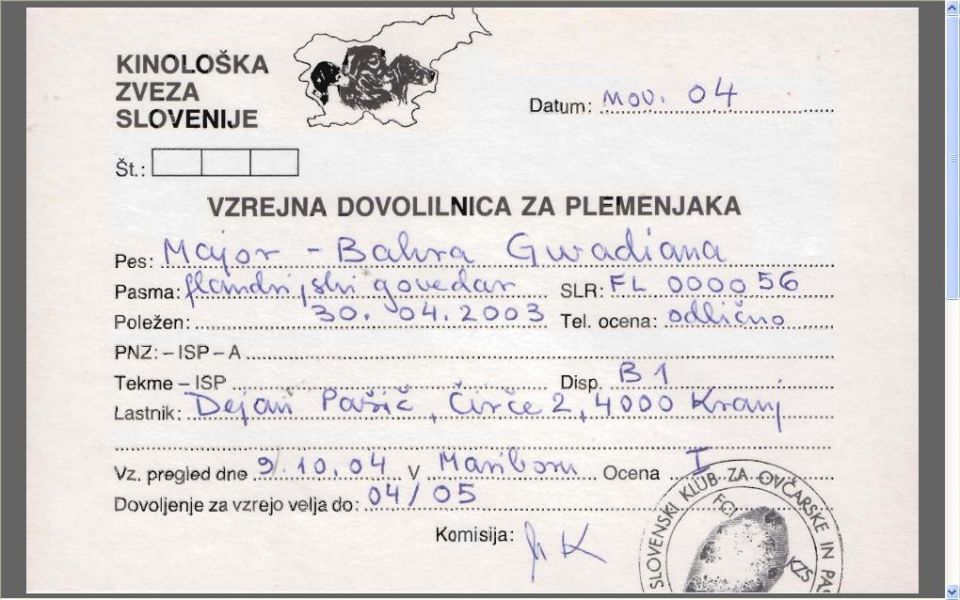 KINOLOŠKA
ZVEZA
SLOVENIJE
Datum: nov. 04
Št.:
VZREJNA DOVOLILNICA ZA PLEMENJAKA
Pes: Major - Bahra Gwadiana
Pasma: flandrijski govedar SLR: FL 0000 56
Poležen: 30. 04. 2003 Tel. ocena: odlično
PNZ: – ISP – A
Tekme – ISP Disp. B 1
Lastnik: Dejan Pašić, Čirče 2, 4000 Kranj
Vz. pregled dne 9. 10. 04 V Mariboru Ocena I
Dovoljenje za vzrejo velja do: 04/05
Komisija:
SLOVENSKI KLUB ZA OVČARSKE IN PAS
FCI
KZS